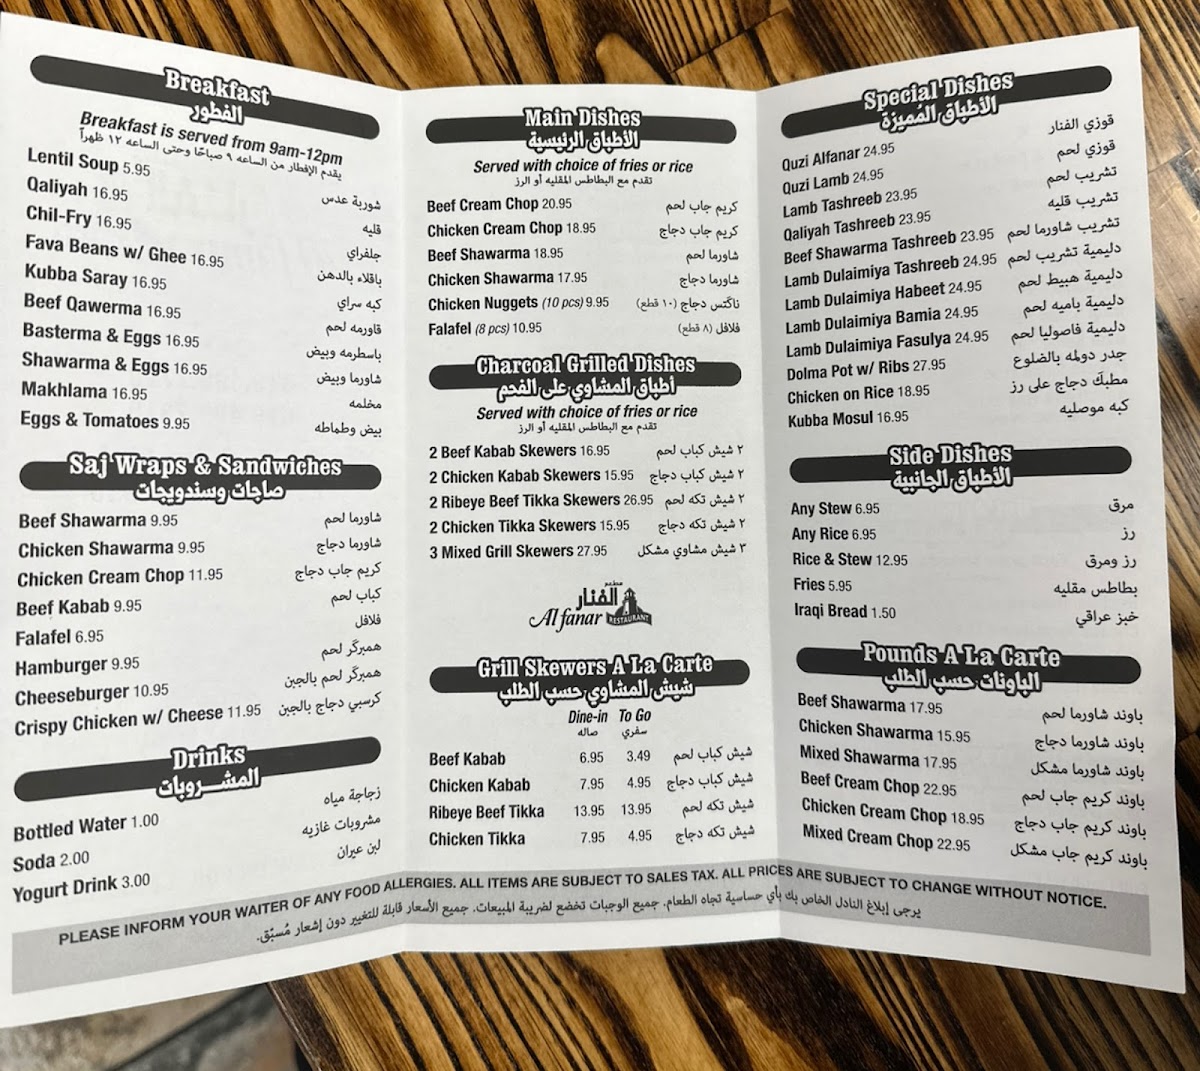 Breakfast
الفطور
Breakfast is served from 9am-12pm
يقدم الإفطار من الساعه ٩ صباحًا وحتى الساعه ١٢ ظهراً
Lentil Soup 5.95 شوربة عدس
Qaliyah 16.95 قليه
Chil-Fry 16.95 جلفراي
Fava Beans w/ Ghee 16.95 باقلاء بالدهن
Kubba Saray 16.95 كبه سراي
Beef Qawerma 16.95 قاورمه لحم
Basterma & Eggs 16.95 باسطرمه وبيض
Shawarma & Eggs 16.95 شاورما وبيض
Makhlama 16.95 مخلمه
Eggs & Tomatoes 9.95 بيض وطماطه
Saj Wraps & Sandwiches
صاجات وسندويجات
Beef Shawarma 9.95 شاورما لحم
Chicken Shawarma 9.95 شاورما دجاج
Chicken Cream Chop 11.95 كريم جاب دجاج
Beef Kabab 9.95 كباب لحم
Falafel 6.95 فلافل
Hamburger 9.95 همبرگر لحم
Cheeseburger 10.95 همبرگر لحم بالجبن
Crispy Chicken w/ Cheese 11.95 كرسبي دجاج بالجبن
Drinks
المشـروبات
Bottled Water 1.00 زجاجة مياه
Soda 2.00 مشروبات غازيه
Yogurt Drink 3.00 لبن عيران
Main Dishes
الأطباق الرئيسية
Served with choice of fries or rice
تقدم مع البطاطس المقليه أو الرز
Beef Cream Chop 20.95 كريم جاب لحم
Chicken Cream Chop 18.95 كريم جاب دجاج
Beef Shawarma 18.95 شاورما لحم
Chicken Shawarma 17.95 شاورما دجاج
Chicken Nuggets (10 pcs) 9.95 ناگتس دجاج (١٠ قطع)
Falafel (8 pcs) 10.95 فلافل (٨ قطع)
Charcoal Grilled Dishes
أطباق المشاوي على الفحم
Served with choice of fries or rice
تقدم مع البطاطس المقليه أو الرز
2 Beef Kabab Skewers 16.95 ٢ شيش كباب لحم
2 Chicken Kabab Skewers 15.95 ٢ شيش كباب دجاج
2 Ribeye Beef Tikka Skewers 26.95 ٢ شيش تكه لحم
2 Chicken Tikka Skewers 15.95 ٢ شيش تكه دجاج
3 Mixed Grill Skewers 27.95 ٣ شيش مشاوي مشكل
مطعم
الفنار
Al fanar RESTAURANT
Grill Skewers A La Carte
شيش المشاوي حسب الطلب
Dine-in To Go
صاله سفري
Beef Kabab 6.95 3.49 شيش كباب لحم
Chicken Kabab 7.95 4.95 شيش كباب دجاج
Ribeye Beef Tikka 13.95 13.95 شيش تكه لحم
Chicken Tikka 7.95 4.95 شيش تكه دجاج
Special Dishes
الأطباق المُميزة
Quzi Alfanar 24.95 قوزي الفنار
Quzi Lamb 24.95 قوزي لحم
Lamb Tashreeb 23.95 تشريب لحم
Qaliyah Tashreeb 23.95 تشريب قليه
Beef Shawarma Tashreeb 23.95 تشريب شاورما لحم
Lamb Dulaimiya Tashreeb 24.95 دليمية تشريب لحم
Lamb Dulaimiya Habeet 24.95 دليمية هبيط لحم
Lamb Dulaimiya Bamia 24.95 دليمية باميه لحم
Lamb Dulaimiya Fasulya 24.95 دليمية فاصوليا لحم
Dolma Pot w/ Ribs 27.95 جدر دولمه بالضلوع
Chicken on Rice 18.95 مطبگ دجاج على رز
Kubba Mosul 16.95 كبه موصليه
Side Dishes
الأطباق الجانبية
Any Stew 6.95 مرق
Any Rice 6.95 رز
Rice & Stew 12.95 رز ومرق
Fries 5.95 بطاطس مقليه
Iraqi Bread 1.50 خبز عراقي
Pounds A La Carte
الباونات حسب الطلب
Beef Shawarma 17.95 باوند شاورما لحم
Chicken Shawarma 15.95 باوند شاورما دجاج
Mixed Shawarma 17.95 باوند شاورما مشكل
Beef Cream Chop 22.95 باوند كريم جاب لحم
Chicken Cream Chop 18.95 باوند كريم جاب دجاج
Mixed Cream Chop 22.95 باوند كريم جاب مشكل
PLEASE INFORM YOUR WAITER OF ANY FOOD ALLERGIES. ALL ITEMS ARE SUBJECT TO SALES TAX. ALL PRICES ARE SUBJECT TO CHANGE WITHOUT NOTICE.
يرجى إبلاغ النادل الخاص بك بأي حساسية تجاه الطعام. جميع الوجبات تخضع لضريبة المبيعات. جميع الأسعار قابلة للتغيير دون إشعار مُسبّق.